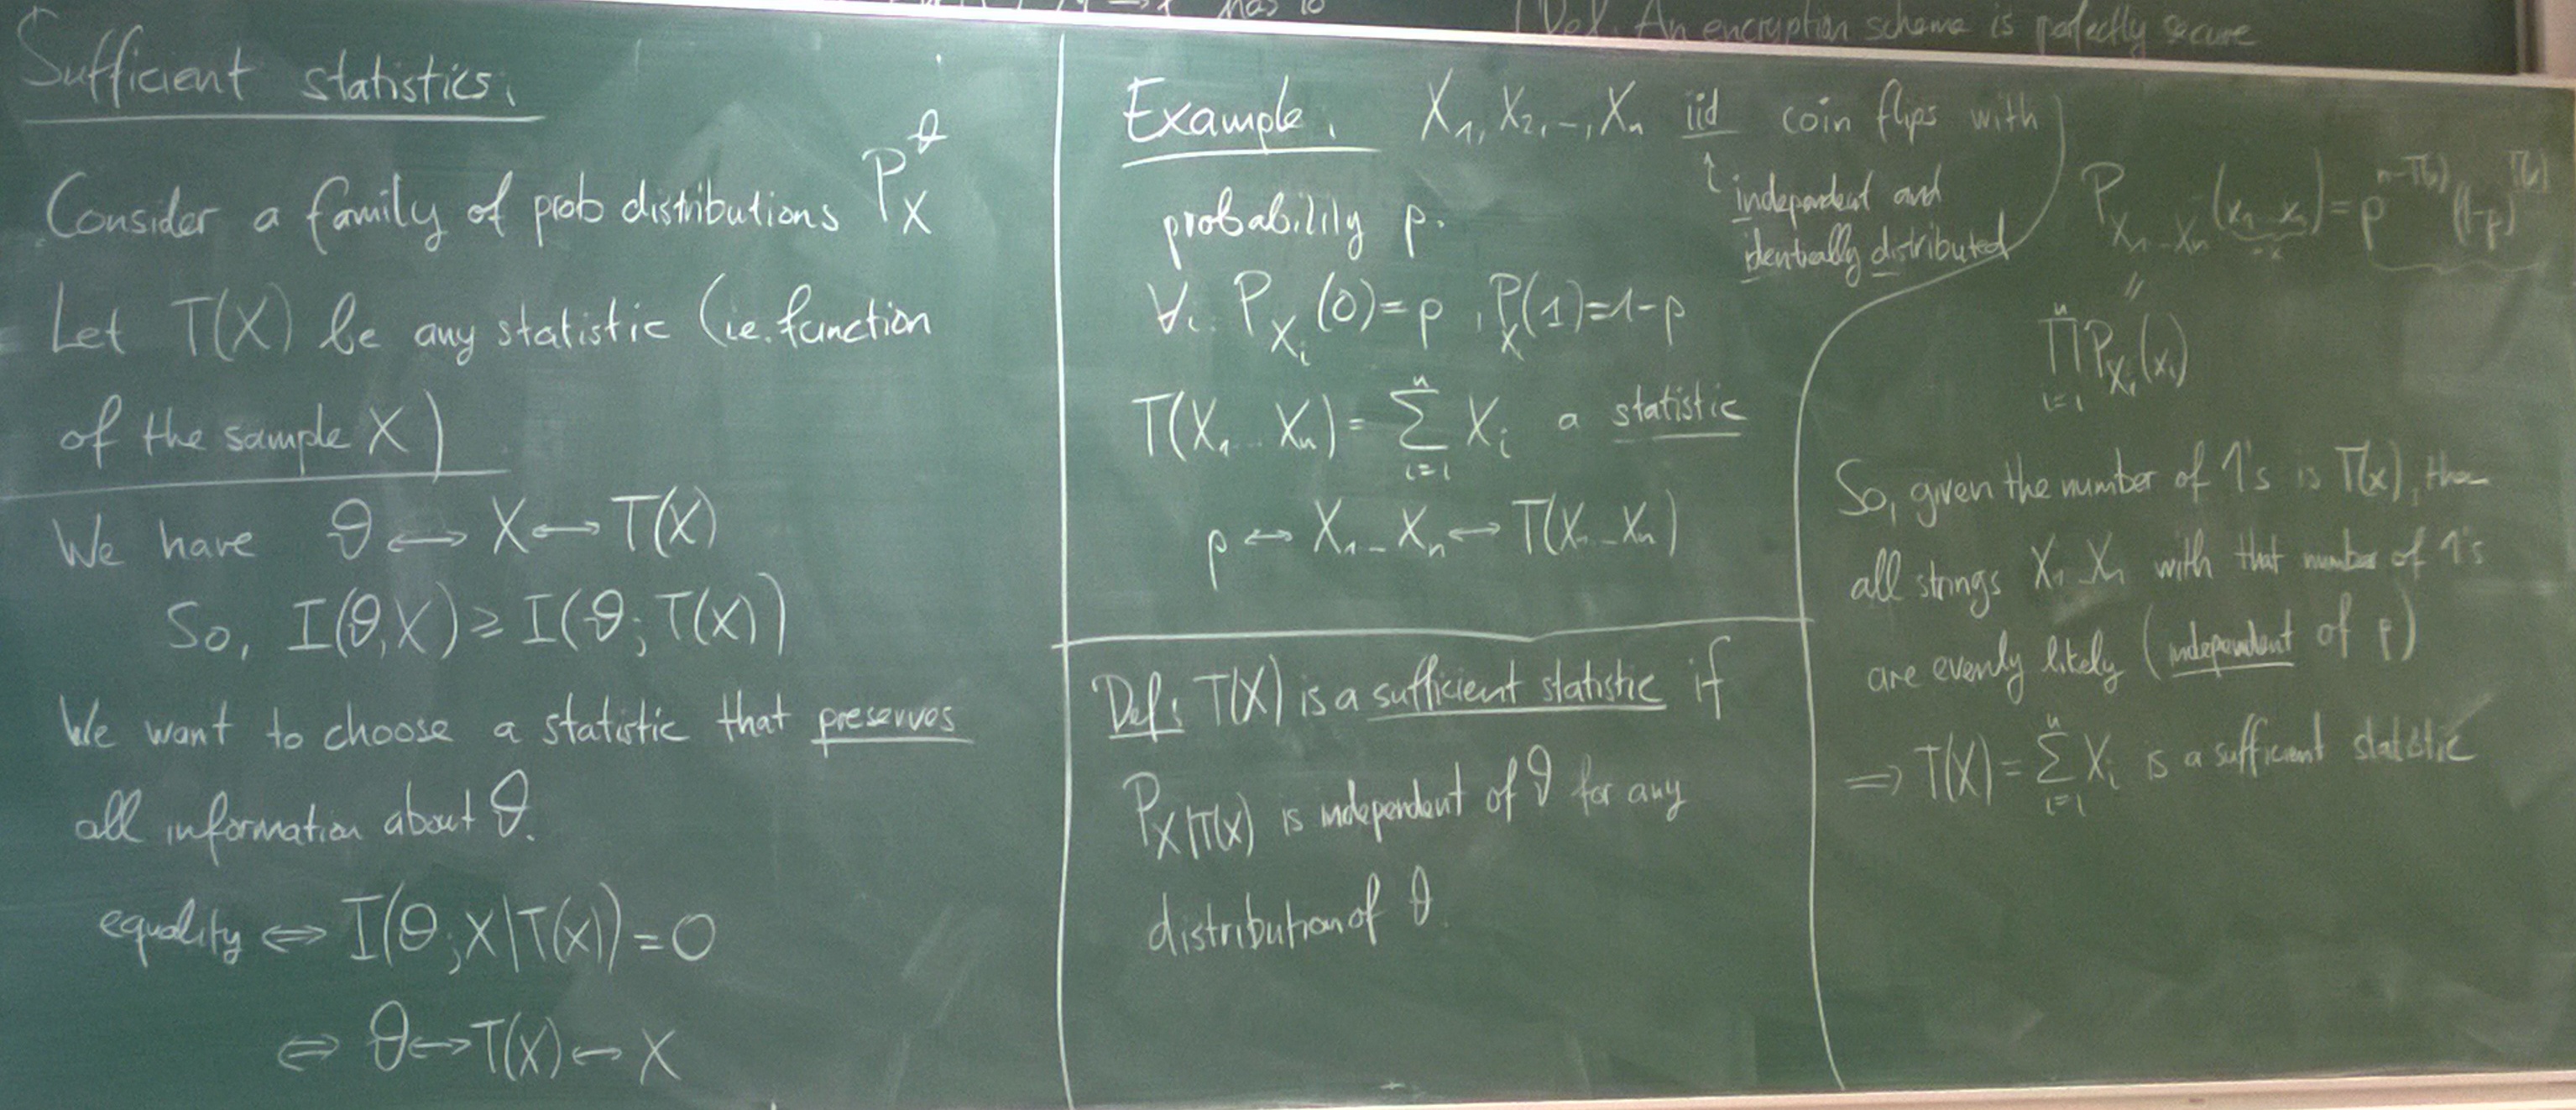 has to
Def. An encryption scheme is perfectly secure
Sufficient statistics.
Consider a family of prob distributions P_X^θ
Let T(X) be any statistic (ie. function
of the sample X)
We have θ ↔ X ↔ T(X)
So, I(θ,X) ≥ I(θ; T(X))
We want to choose a statistic that preserves
all information about θ.
equality ⇔ I(θ;X|T(X)) = 0
⇔ θ ↔ T(X) ↔ X
Example. X_1, X_2, -, X_n iid coin flips with
↑ independent and
identically distributed
probability p.
∀i: P_{X_i}(0)=p, P_X(1)=1-p
T(X_1...X_n) = ∑_{i=1}^n X_i a statistic
p ↔ X_1 - X_n ↔ T(X_1 - X_n)
Def: T(X) is a sufficient statistic if
P_{X|T(X)} is independent of θ for any
distribution of θ.
P_{X_1 - X_n}(x_1 - x_n) = p^{n-T(x)} (1-p)^{T(x)}
=x
"
∏_{i=1}^n P_{X_i}(x_i)
So, given the number of 1's is T(x), the
all strings X_1 - X_n with that number of 1's
are evenly likely (independent of p)
⇒ T(X) = ∑_{i=1}^n X_i is a sufficient statistic